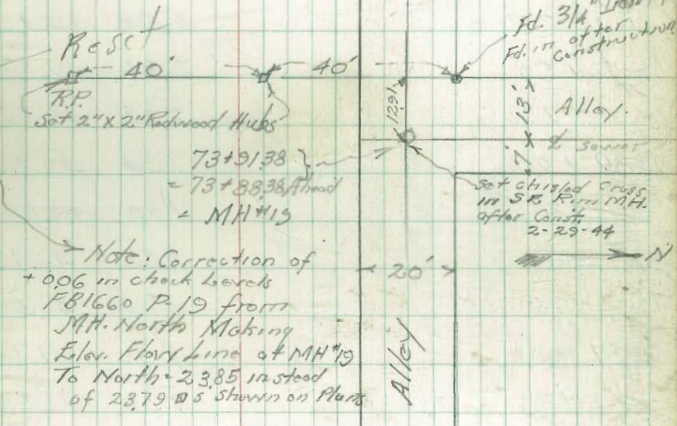 Reset
Fd. 3/4"
Fd. in after
Construction
40'
40'
R.P.
Set 2" x 2" Redwood Hubs
12.91
13'
7'
Alley.
℄ sewer
73+91.38
= 73+88.38 Ahead
= MH#19
Set chisled Cross
in SE. Rim M.H.
after Const.
2-29-44
N
20'
Alley
Note: Correction of
+0.06 in check Levels
FB1660 P-19 from
MH. North Making
Elev. Flow Line at MH#19
To North = 23.85 instead
of 23.79 as shown on Plans